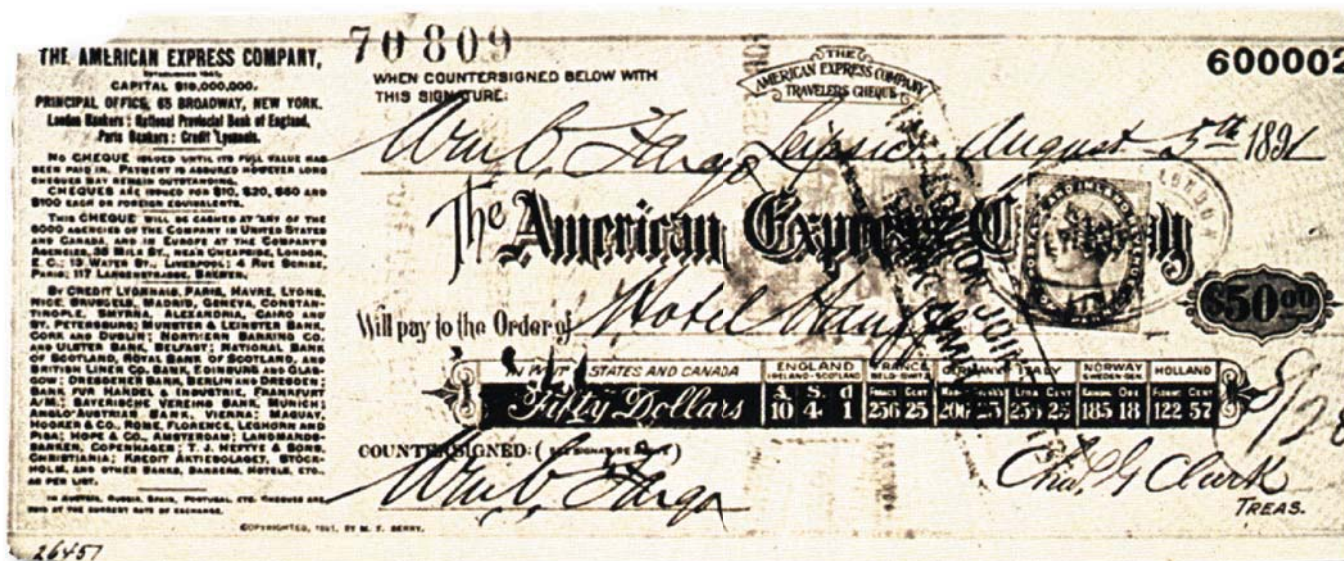 THE AMERICAN EXPRESS COMPANY,
ESTABLISHED 1841.
CAPITAL $18,000,000.
PRINCIPAL OFFICE, 65 BROADWAY, NEW YORK.
London Bankers: National Provincial Bank of England.
Paris Bankers: Credit Lyonnais.
NO CHEQUE ISSUED UNTIL ITS FULL VALUE HAS
BEEN PAID IN. PAYMENT IS ASSURED HOWEVER LONG
CHEQUES MAY REMAIN OUTSTANDING.
CHEQUES ARE ISSUED FOR $10, $20, $50 AND
$100 EACH OR FOREIGN EQUIVALENTS.
THIS CHEQUE WILL BE CASHED AT ANY OF THE
6000 AGENCIES OF THE COMPANY IN UNITED STATES
AND CANADA, AND IN EUROPE AT THE COMPANY'S
AGENCIES, 35 MILK ST., NEAR CHEAPSIDE, LONDON,
E. C.; 13 WATER ST., LIVERPOOL; 4 RUE SCRIBE,
PARIS; 117 LANGENSTRASSE, BREMEN.
BY CREDIT LYONNAIS, PARIS, HAVRE, LYONS,
NICE, BRUSSELS, MADRID, GENEVA, CONSTAN-
TINOPLE, SMYRNA, ALEXANDRIA, CAIRO AND
ST. PETERSBURG; MUNSTER & LEINSTER BANK,
CORK AND DUBLIN; NORTHERN BANKING CO.
AND ULSTER BANK, BELFAST; NATIONAL BANK
OF SCOTLAND, ROYAL BANK OF SCOTLAND, AND
BRITISH LINEN CO. BANK, EDINBURG AND GLAS-
GOW; DRESDENER BANK, BERLIN AND DRESDEN;
BANK FUR HANDEL & INDUSTRIE, FRANKFURT
A/M; BAYERISCHE VEREINS BANK, MUNICH;
ANGLO-AUSTRIAN BANK, VIENNA; MAQUAY,
HOOKER & CO., ROME, FLORENCE, LEGHORN AND
PISA; HOPE & CO., AMSTERDAM; LANDMANDS-
BANKEN, COPENHAGEN; T. J. HEFTYE & SONS,
CHRISTIANIA; KREDIT AKTIEBOLAGET, STOCK-
HOLM, AND OTHER BANKS, BANKERS, HOTELS, ETC.,
AS PER LIST.
IN AUSTRIA, RUSSIA, SPAIN, PORTUGAL, ETC. CHEQUES ARE
PAID AT THE CURRENT RATE OF EXCHANGE.
COPYRIGHTED, 1891, BY M. F. BERRY.
26457
70809
WHEN COUNTERSIGNED BELOW WITH
THIS SIGNATURE:
THE
AMERICAN EXPRESS COMPANY
TRAVELERS CHEQUE
600002
Wm C. Fargo Leipsic, August 5th 1891
The American Express Company
LONDON
$50.00
Will pay to the Order of Hotel Hauffe
IN UNITED STATES AND CANADA ENGLAND IRELAND-SCOTLAND FRANCE BELG SWITZ GERMANY ITALY NORWAY SWEDEN HOLLAND
£ S. d FRANCS CENT LIRA CENT
Fifty Dollars 10 4 1 256 25 206 25 256 25 185 18 122 57
COUNTERSIGNED:
Wm C. Fargo
Chas G Clark
TREAS.